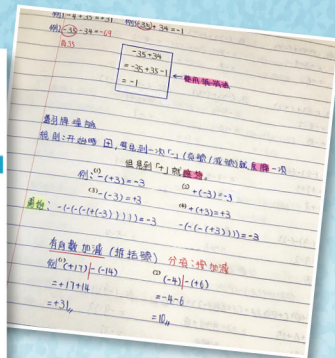 例1) -4+35=+31 例(-35)+34=-1
例2) -35-34=-69
負號
-35+34
=-35+35-1
=-1
翻牌理論
規則:開始時 +,每見到一次「-」(負號/減號)就反轉一次
但見到「+」就維持。
例:(1) -(+3)=-3 (2) +(-3)=-3
(3) -(-3)=+3 (4) +(+3)=+3
-(-(-(+(-3)))))=-3 -(-(-(+3))))=-3
有向數加減(拆括號) 分項:按加減
例(1) (+17)-(-14) (2) (-4)-(+6)
=+17+14 =-4-6
=+31 =10